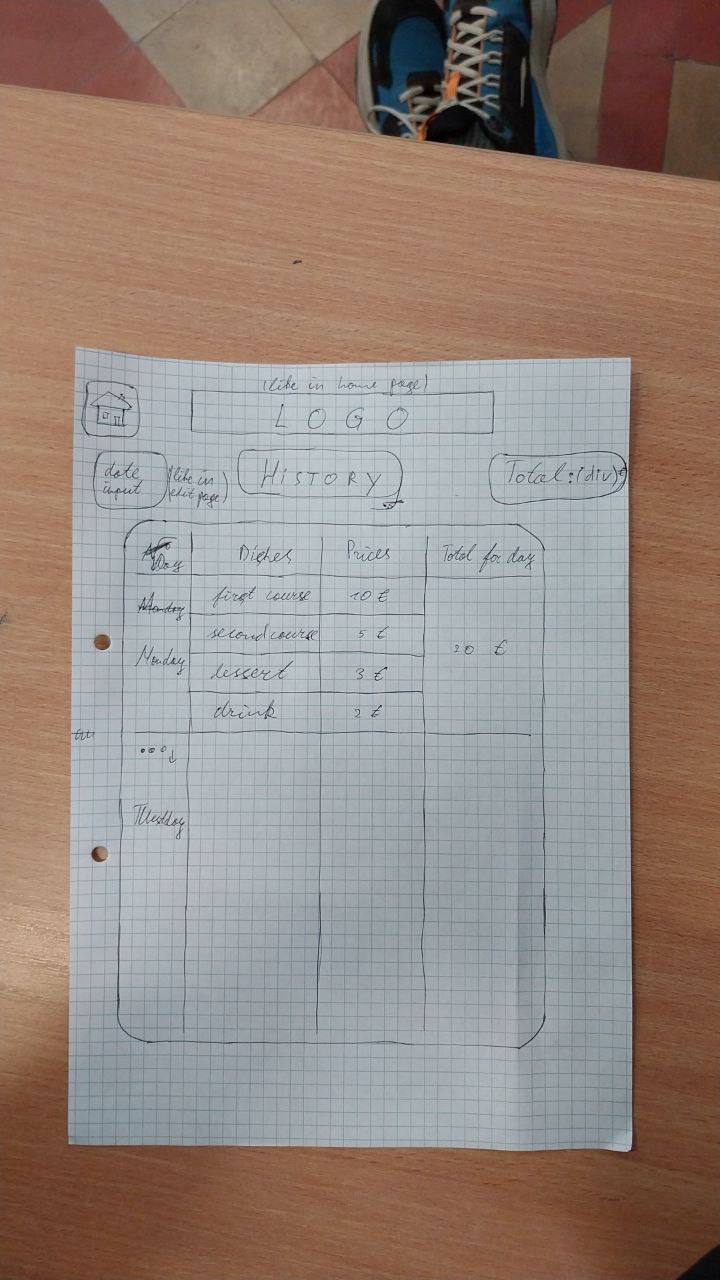 (like in home page)
LOGO
date input
(like in edit page)
HISTORY
Total: (div) €
Day Dishes Prices Total for day
Monday
first course 10 €
second course 5 €
Monday 20 €
dessert 3 €
drink 2 €
Tuesday